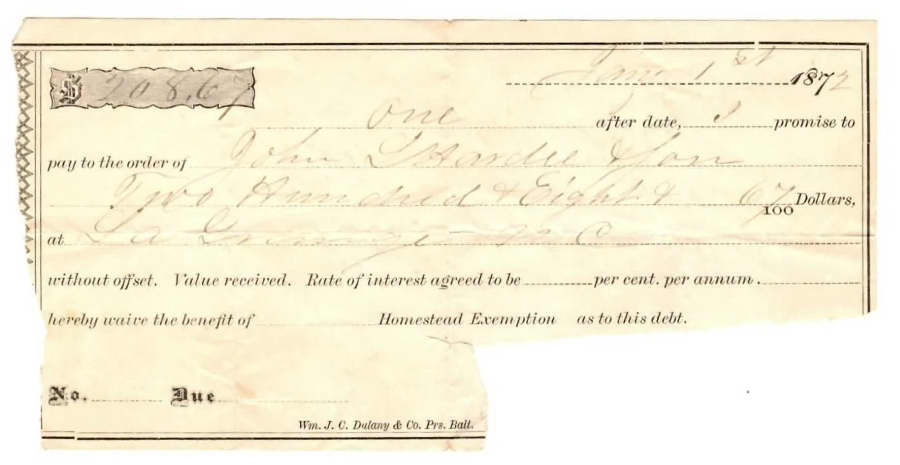 $ 208.67 Jany 1st 1872
one after date, I promise to
pay to the order of John L Hardee & Son
Two Hundred & Eight & 67/100 Dollars,
at La Grange N C
without offset. Value received. Rate of interest agreed to be per cent. per annum.
hereby waive the benefit of Homestead Exemption as to this debt.
No. Due
Wm. J. C. Dulany & Co. Prs. Balt.